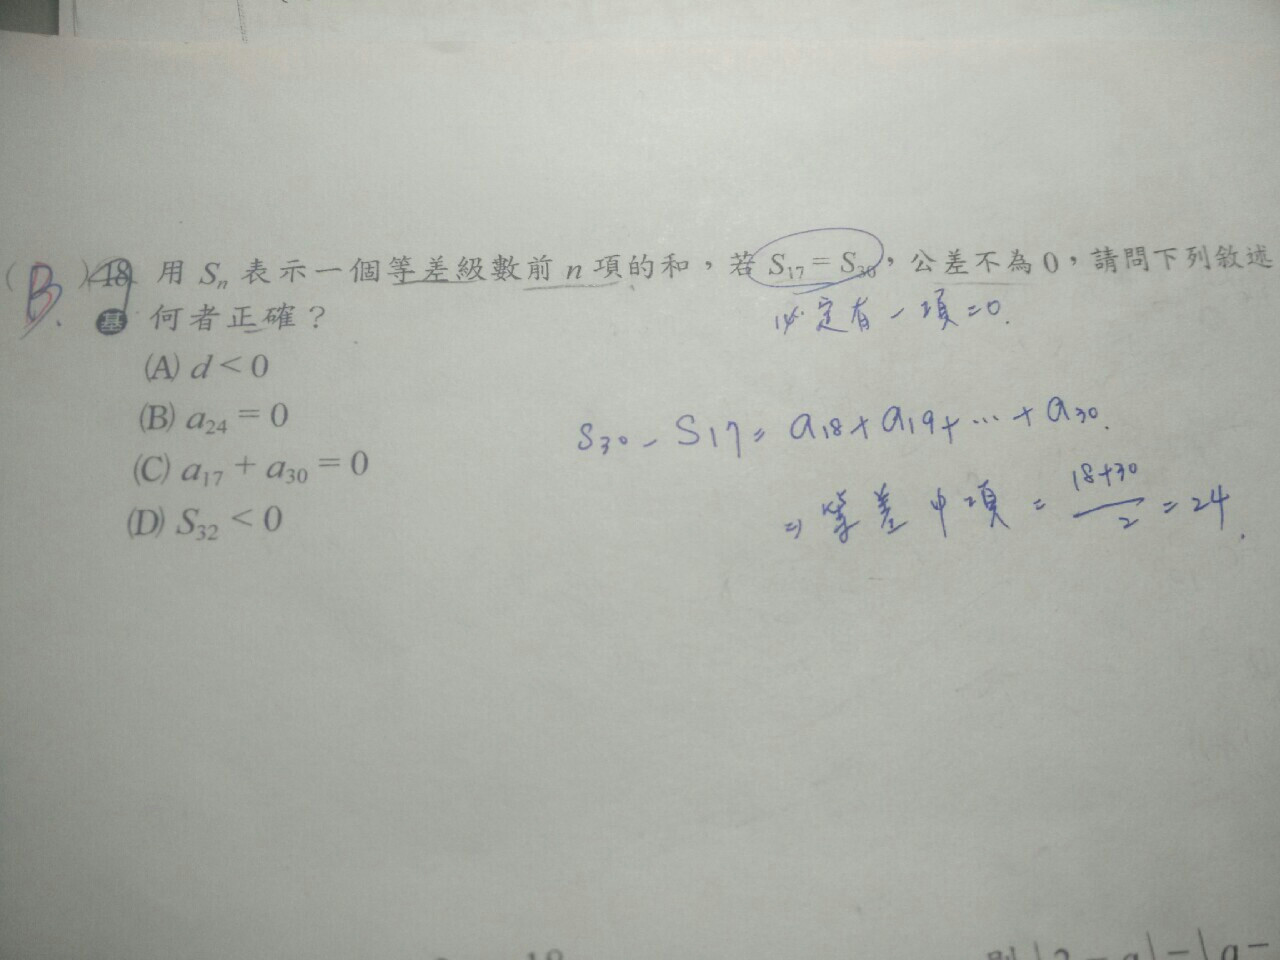 (B.) 18. 用 Sₙ 表示一個等差級數前 n 項的和，若 S₁₇ = S₃₀，公差不為 0，請問下列敘述
基 何者正確？
必定有一項=0.
(A) d < 0
(B) a₂₄ = 0
(C) a₁₇ + a₃₀ = 0
(D) S₃₂ < 0
S₃₀ - S₁₇ = a₁₈ + a₁₉ + … + a₃₀.
⇒ 等差中項 = (18+30)/2 = 24.